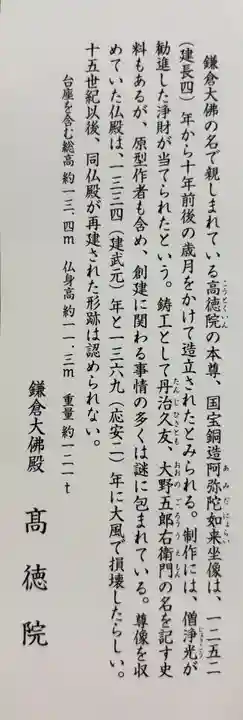 鎌倉大佛の名で親しまれている高徳院の本尊、国宝銅造阿弥陀如来坐像は、一二五二
こうとくいん
あみだにょらい
（建長四）年から十年前後の歳月をかけて造立されたとみられる。制作には、僧浄光が
じょうこう
勧進した浄財が当てられたという。鋳工として丹治久友、大野五郎右衛門の名を記す史
たんじひさとも
おおのごろうえもん
料もあるが、原型作者も含め、創建に関わる事情の多くは謎に包まれている。尊像を収
めていた仏殿は、一三三四（建武元）年と一三六九（応安二）年に大風で損壊したらしい。
十五世紀以後、同仏殿が再建された形跡は認められない。
台座を含む総高 約一三.四m　仏身高 約一一.三m　重量 約一二一t
鎌倉大佛殿
高徳院